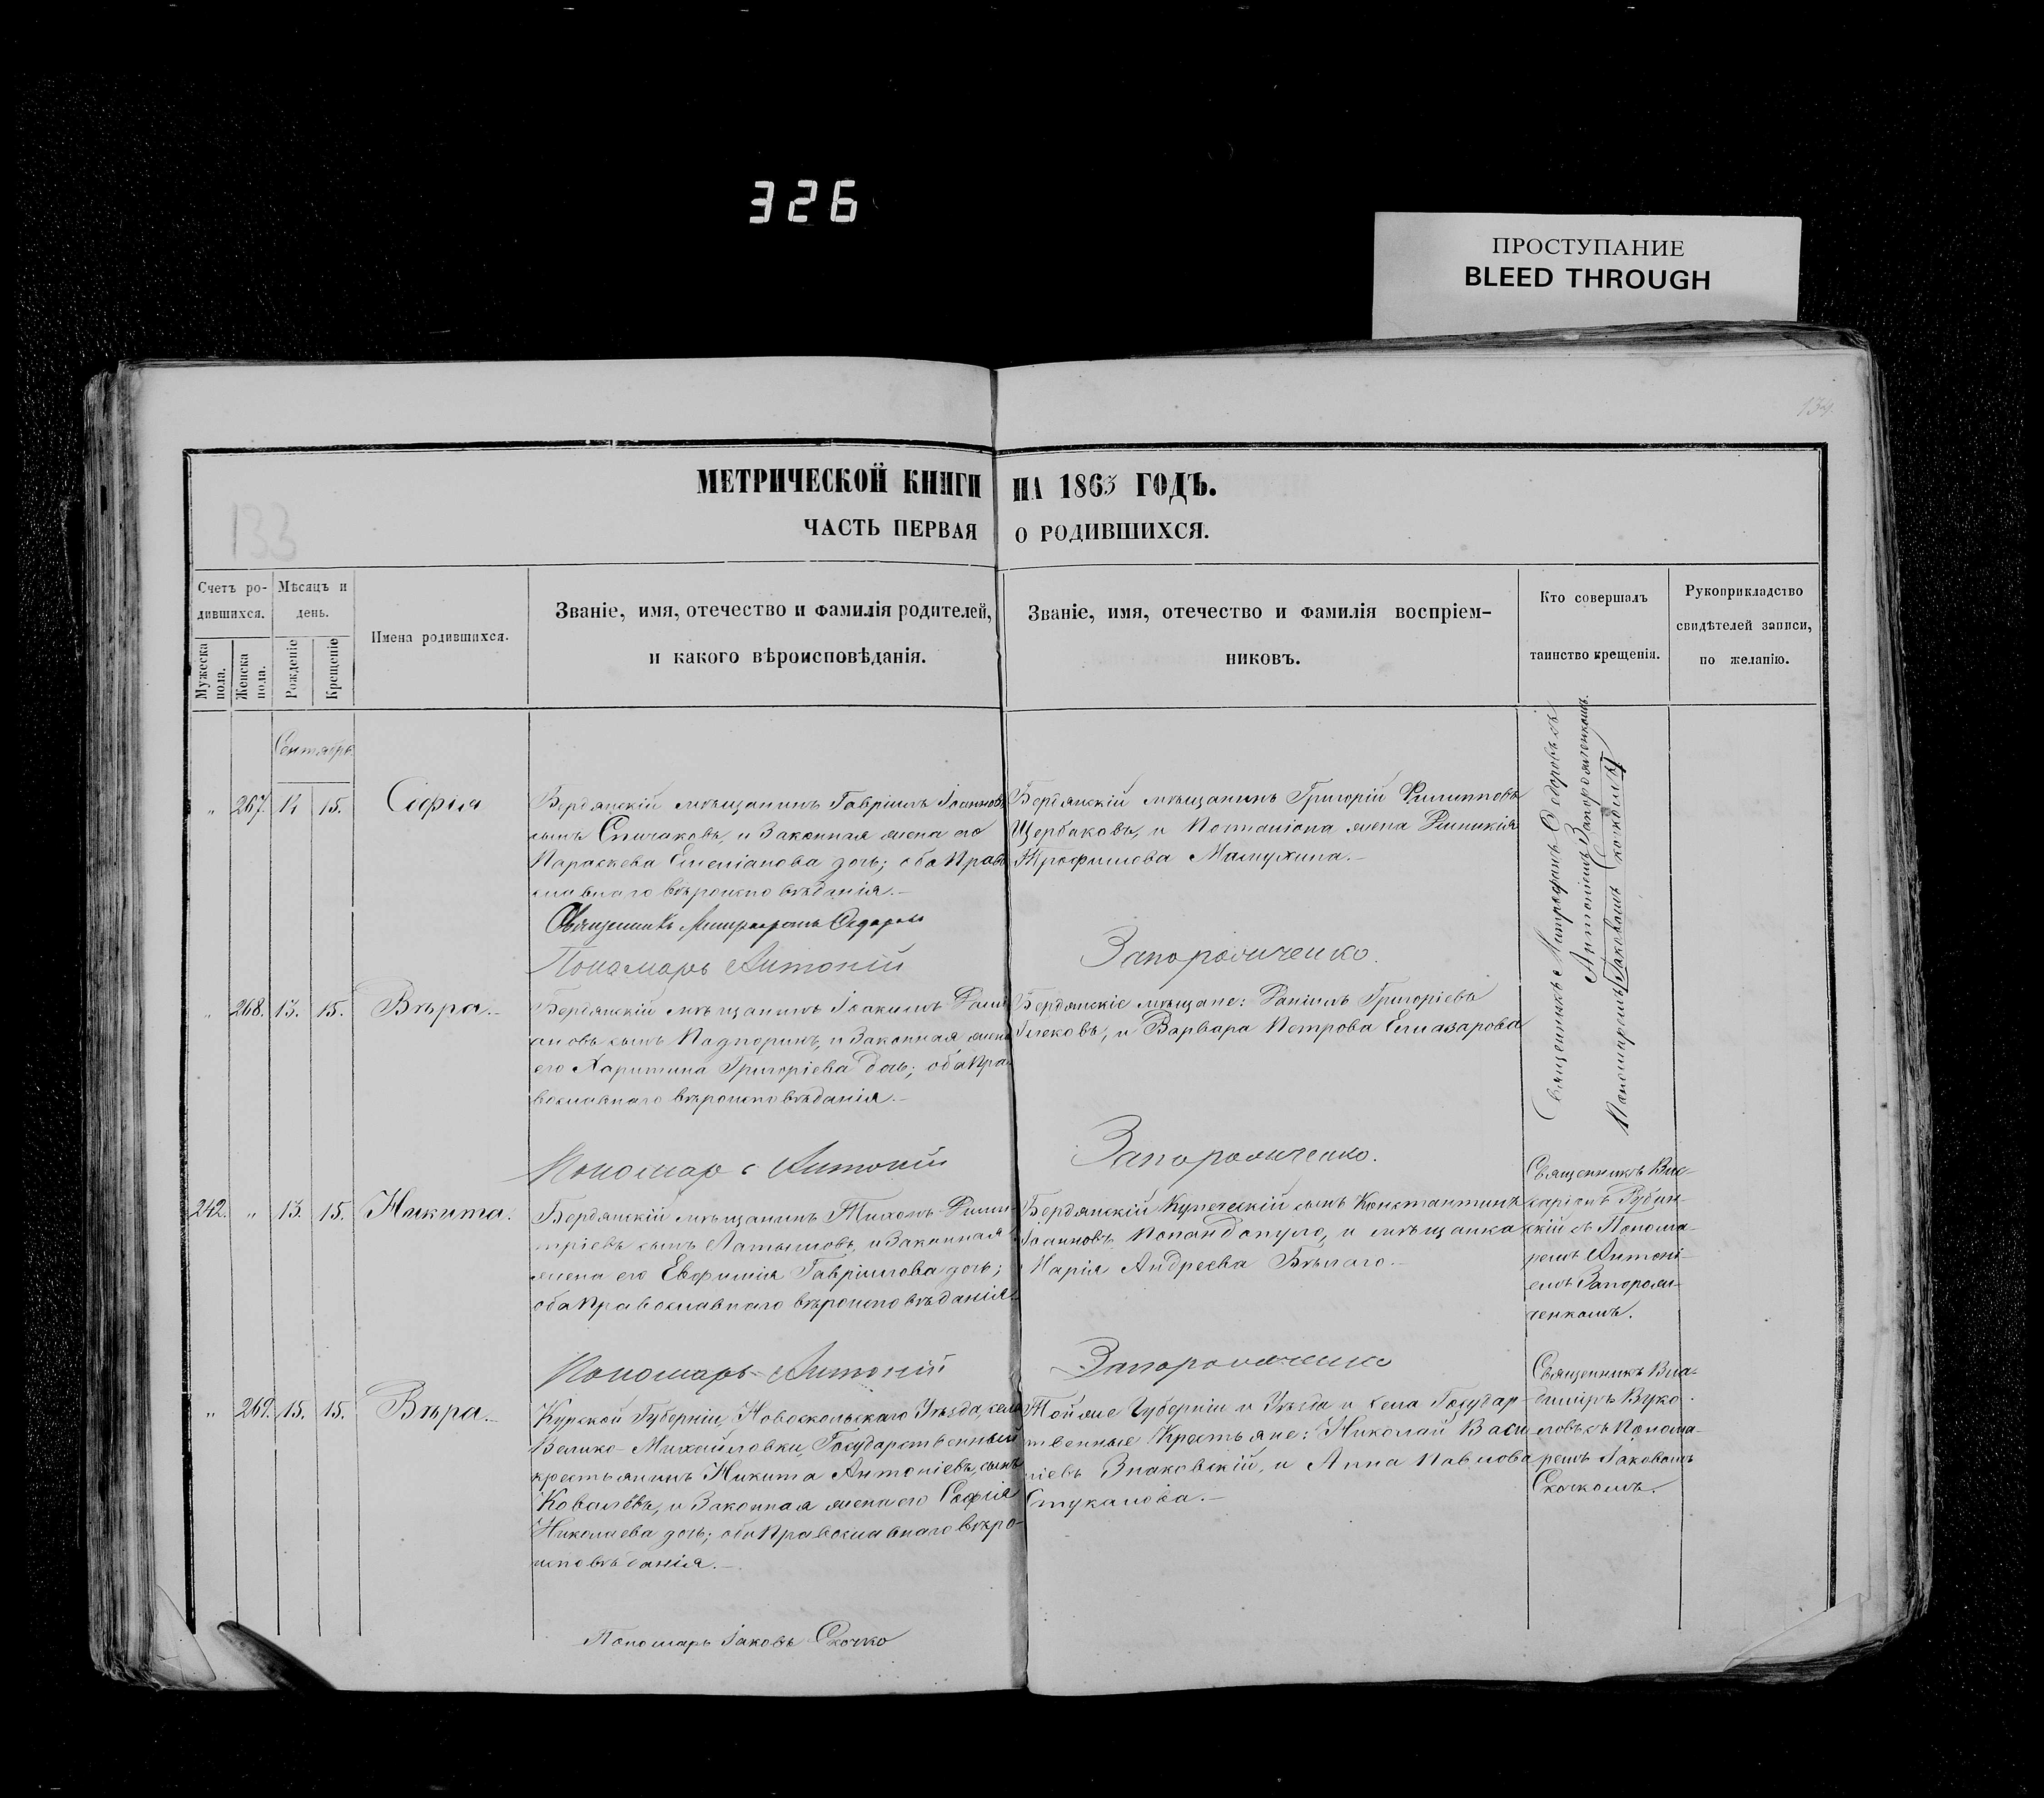 326
ПРОСТУПАНИЕ
BLEED THROUGH
134.
133
МЕТРИЧЕСКОЙ КНИГИ НА 1863 ГОДЪ.
ЧАСТЬ ПЕРВАЯ О РОДИВШИХСЯ.
Счетъ ро-
дившихся.
Мужеска пола.
Женска пола.
Мѣсяцъ и
день.
Рожденіе
Крещеніе
Имена родившихся.
Званіе, имя, отечество и фамилія родителей,
и какого вѣроисповѣданія.
Званіе, имя, отечество и фамилія воспріем-
никовъ.
Кто совершалъ
таинство крещенія.
Рукоприкладство
свидѣтелей записи,
по желанію.
Сентябрь
" 267. 15. Софія
Бердянскій мѣщанинъ Гавріилъ Іоанновъ
сынъ Спичаковъ, и Законная жена его
Параскева Емеліанова дочь; оба Право
славнаго вѣроисповѣданія.-
Бердянскій мѣщанинъ Григорій Филипповъ
Щербаковъ, и жена
Трофимова
Священникъ Митрофанъ Ѳедоровъ съ
Антоніемъ Запорожченкомъ
Пономаремъ Іаковомъ
Священникъ Митрофанъ Ѳедоровъ
Пономарь Антоній Запорожченко.
" 268. 13. 15. Вѣра.-
Бердянскій мѣщанинъ Іоакимъ
сынъ Подпоринъ, и Законная жена
его Харитина Григоріева дочь; оба Пра
вославнаго вѣроисповѣданія.-
Бердянскіе мѣщане: Даніилъ Григоріевъ
и Варвара Петрова Елиазарова
Пономарь Антоній Запорожченко.
242. " 13. 15. Никита.
Бердянскій мѣщанинъ Тихонъ Дими-
тріевъ сынъ Латышовъ, и Законная
жена его Евфимія Гавріилова дочь;
оба Православнаго вѣроисповѣданія.
Бердянскій Купеческій сынъ Константинъ
Іоанновъ Попандопуло, и мѣщанка
Марія Андреева Бѣлаго.-
Священникъ Вис-
саріонъ Рубин-
скій съ Понома-
ремъ Антоні-
емъ Запорож-
ченкомъ.
Пономарь Антоній Запорожченко
" 269. 15. 15. Вѣра.-
Курской Губерніи, Новоскольскаго Уѣзда, села
Велико-Михайловки, Государственный
крестьянинъ Никита Антоніевъ, сынъ
Ковалёвъ, и Законная жена его Софія
Николаева дочь; оба Православнаго вѣро-
исповѣданія.-
Той же Губерніи и Уѣзда и села Государ-
твенные Крестьяне: Николай Васи
ліевъ Знаковскій, и Анна Павлова
Стукалова.-
Священникъ Вла-
диміръ Вуко-
ловъ съ Понома-
ремъ Іаковомъ
Скочкомъ.
Пономарь Іаковъ Скочко